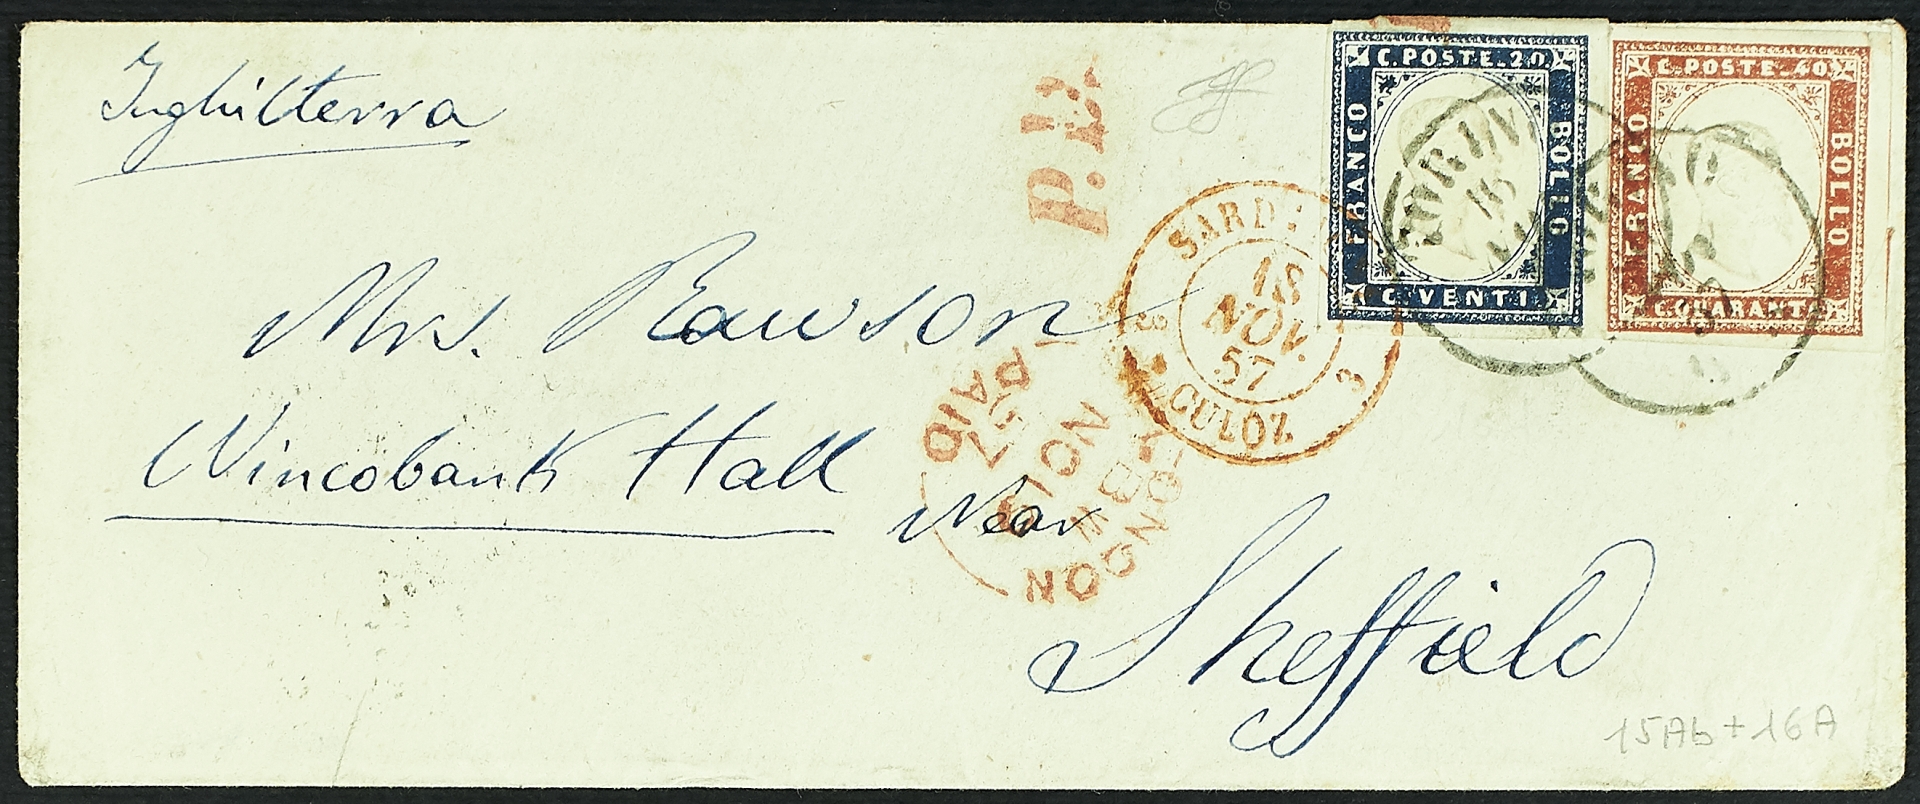 Inghilterra
P.D.
C. POSTE. 20.
FRANCO
BOLLO
C. VENTI
C. POSTE. 40
FRANCO
BOLLO
C. QUARANTA
TORINO
16
SARD
18
NOV.
57
CULOZ
3
3
Mrs. Rawson
Wincobank Hall
Near
Sheffield
LONDON
NO 19
57
PAID
15Ab + 16A